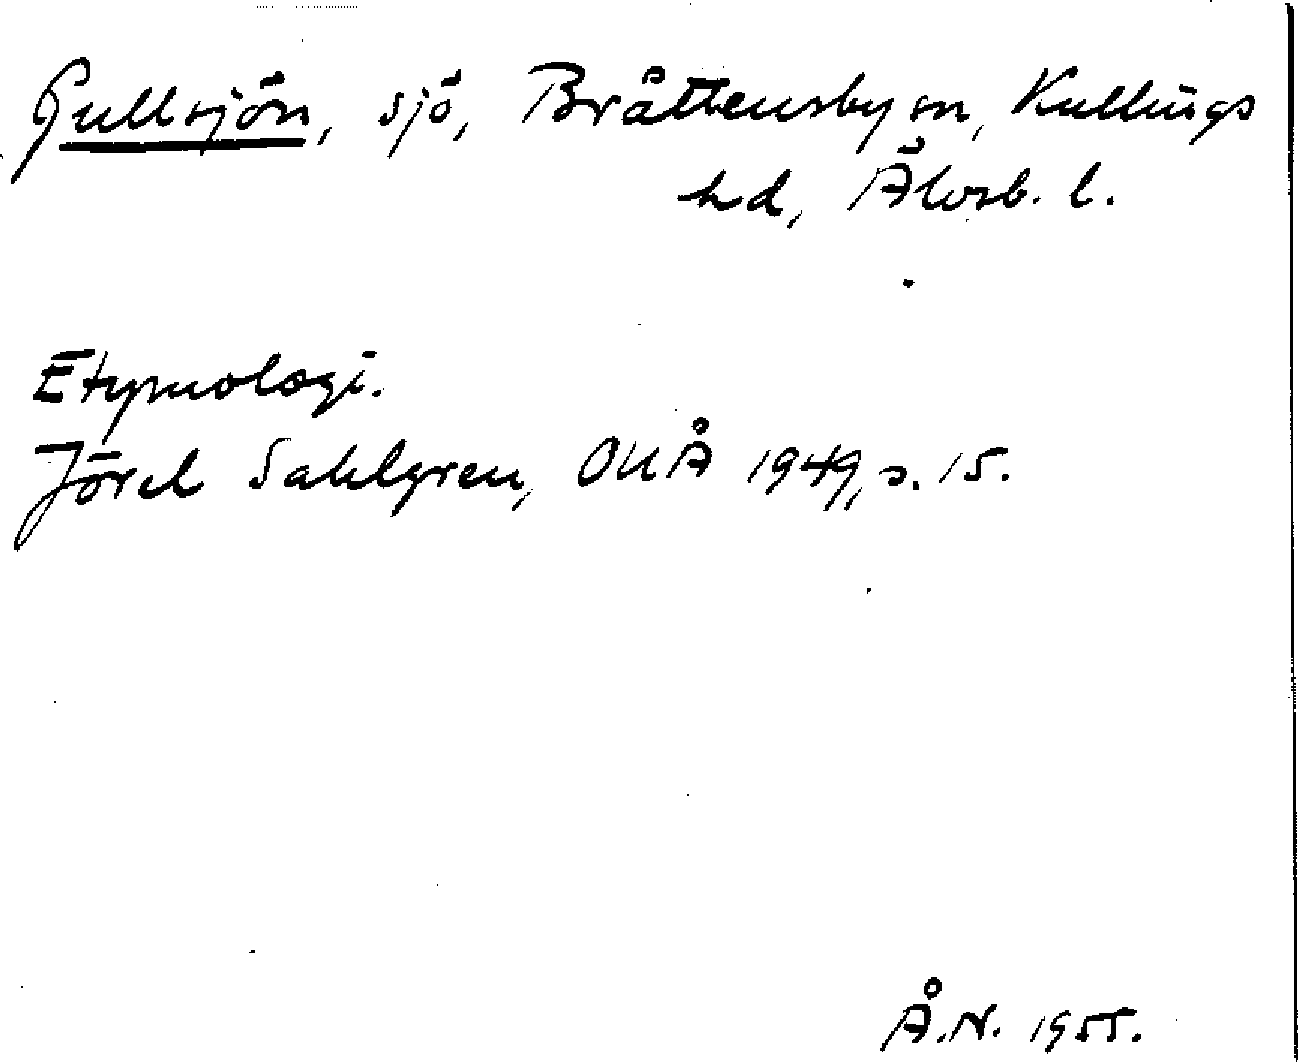 Gullsjön, sjö, Bråttensby sn, Kullings
hd, Älvsb. l.
Etymologi.
Jöran Sahlgren, ONÅ 1949, s. 15.
Å.N. 1955.